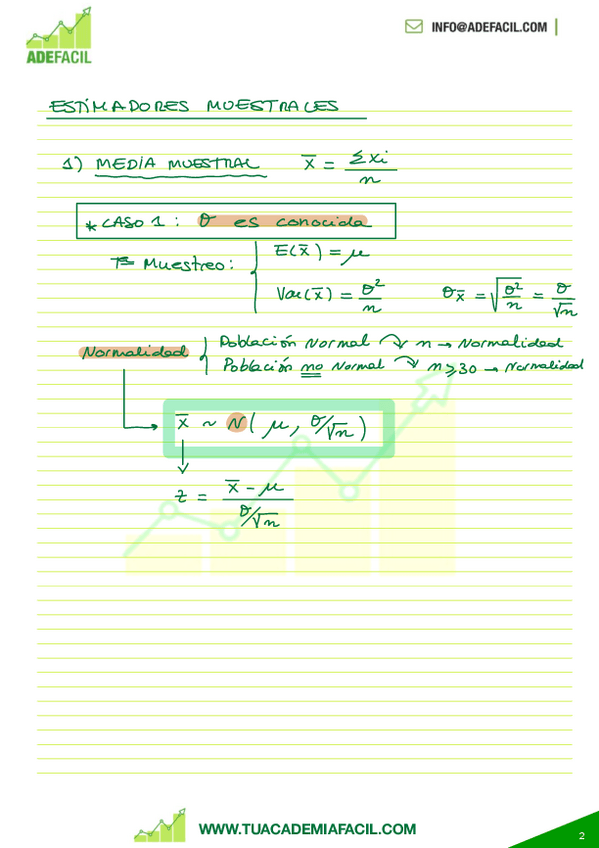 ADEFACIL
INFO@ADEFACIL.COM
ESTIMADORES MUESTRALES
1) MEDIA MUESTRAL x̄ = Σxi / n
* CASO 1: σ es conocida
Muestreo: E(x̄) = μ
Var(x̄) = σ²/n σx̄ = √(σ²/n) = σ/√n
Normalidad Población Normal ↷ n → Normalidad
Población no Normal ↷ n ≥ 30 → Normalidad
x̄ ~ N(μ, σ/√n)
z = (x̄ - μ) / (σ/√n)
WWW.TUACADEMIAFACIL.COM
2